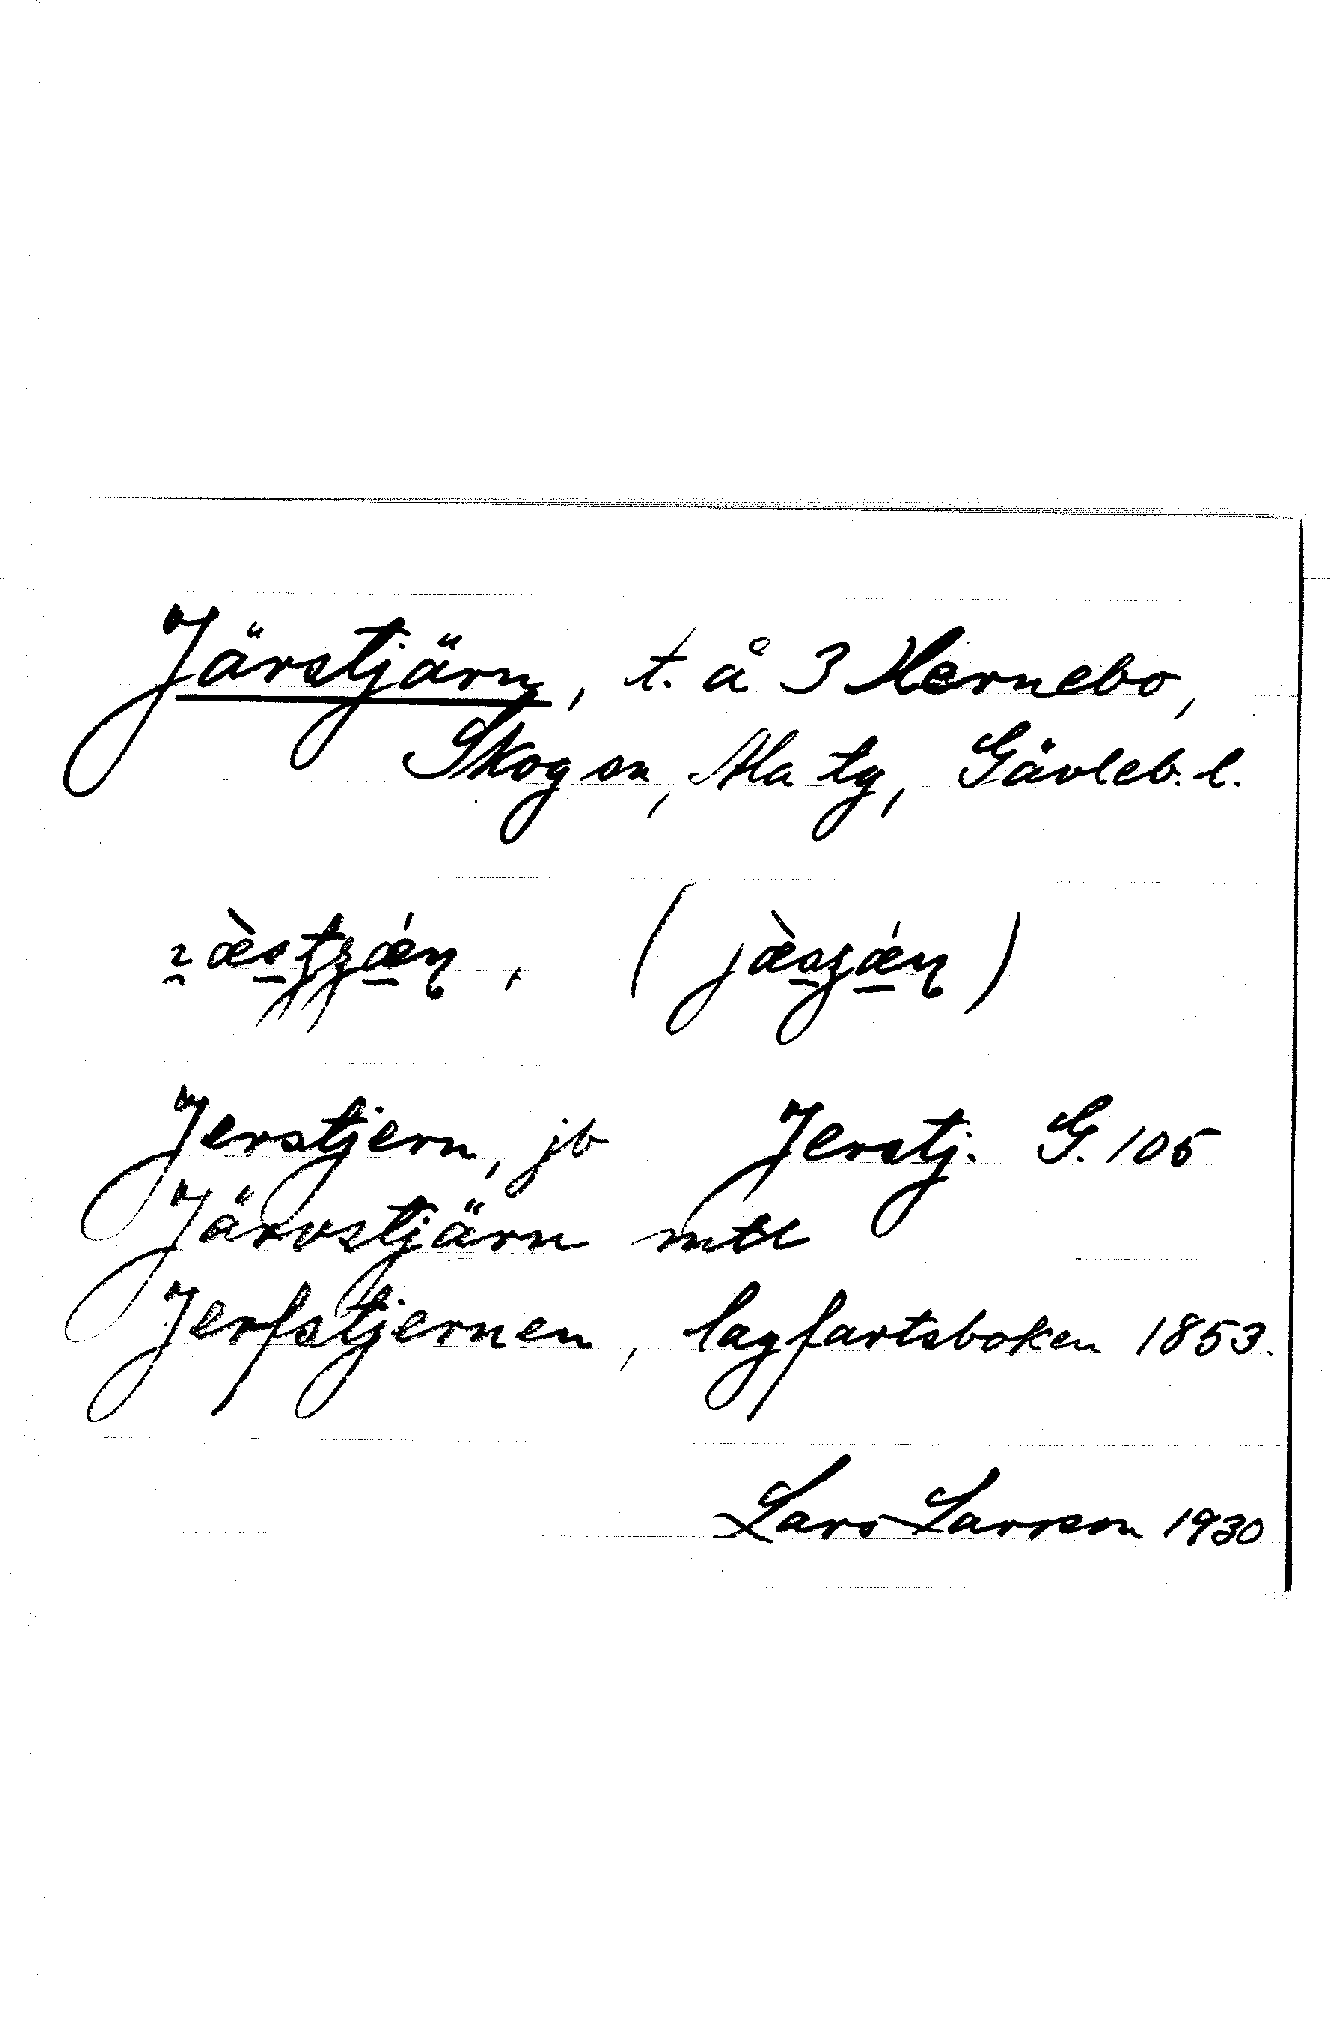 Järstjärn, t. å 3 Hernebo,
Skog sn, Ala tg, Gävleb. l.
Jerstjern, jb Jerstj. G. 105
Järvstjärn mtl
Jerfstjernen, lagfartsboken 1853.
Lars Larsson 1930